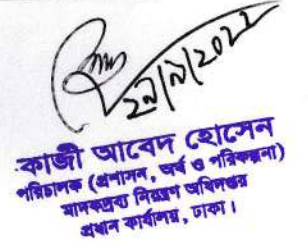 ২৭/৯/২০২২
কাজী আবেদ হোসেন
পরিচালক (প্রশাসন, অর্থ ও পরিকল্পনা)
মাদকদ্রব্য নিয়ন্ত্রণ অধিদপ্তর
প্রধান কার্যালয়, ঢাকা।